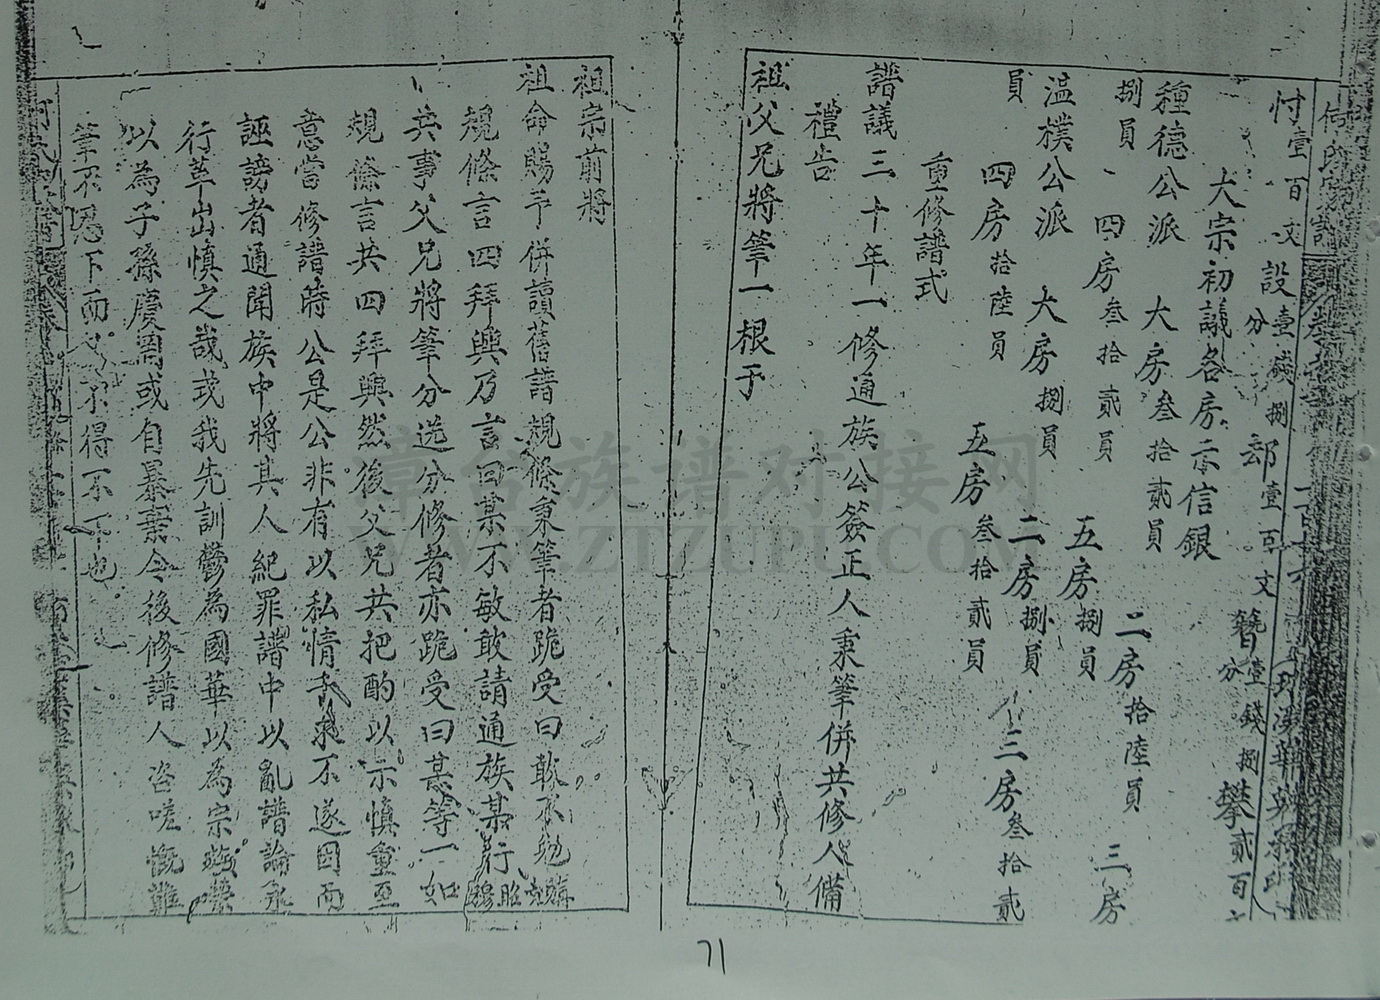 忖壹百文 設壹分 磺捌 部壹百文 簪壹分 錢捌 攀貳百
大宗初議各房示信銀
種德公派 大房叁拾貳員 二房拾陸員 三房
捌員 四房叁拾貳員 五房捌員
溫樸公派 大房捌員 二房捌員 三房叁拾貳
員 四房拾陸員 五房叁拾貳員
重修譜式
譜議三十年一修通族公簽正人秉筆併共修人備
禮告
祖父兄將筆一根于
祖宗前將
祖命賜予併讀舊譜規條秉筆者跪受曰敢不勉
規條言四拜興乃言曰某不敏敢請通族某行昭穆
共事父兄將筆分送分修者亦跪受曰某等一如
規條言共四拜興然後父兄共把酌以示慎重至
意當修譜時公是公非有以私情干求不遂因而
誣謗者通聞族中將其人紀罪譜中以亂譜論永
行革出慎之哉我先訓鬱為國華以為宗
以為子孫慶焉或自暴棄今後修譜人咨嗟慨難
筆不忍下而又不得不下也
漳台族谱对接网
WWW.ZTZUPU.COM
71